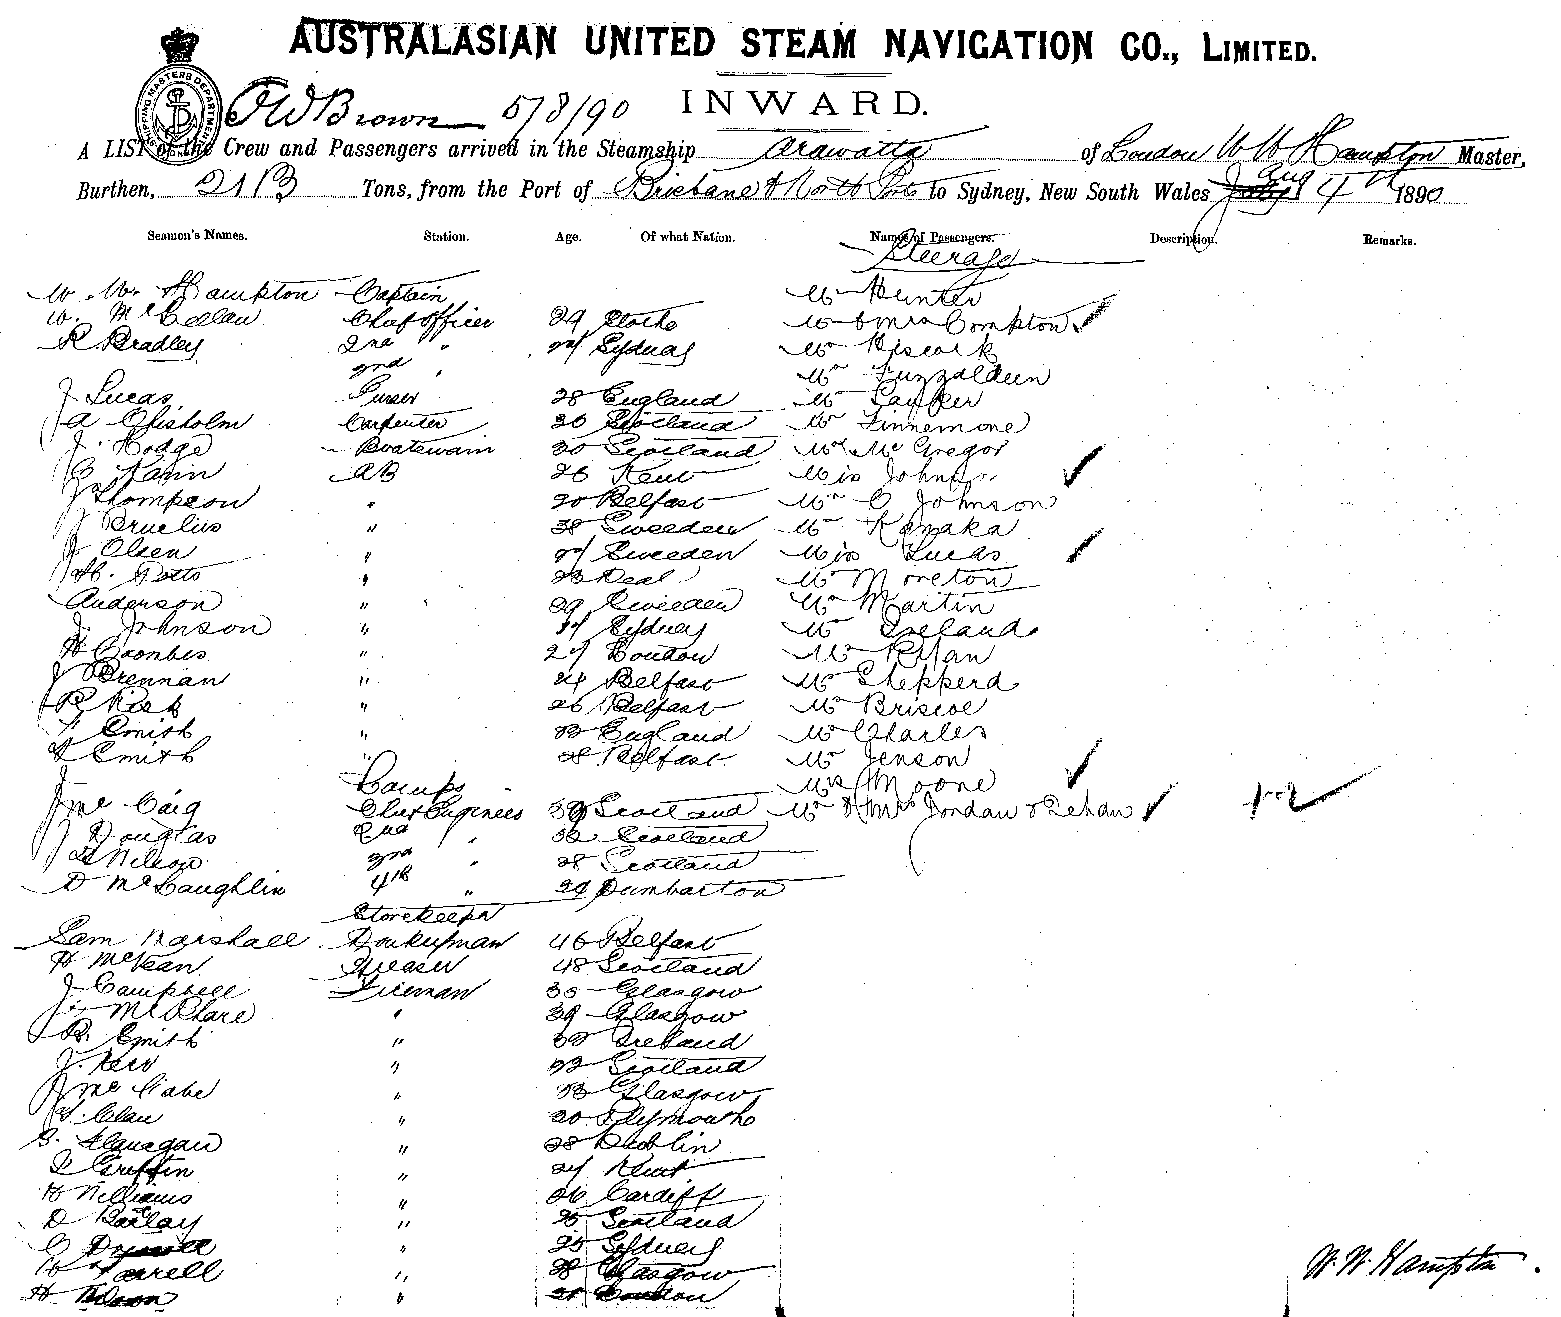 AUSTRALASIAN UNITED STEAM NAVIGATION CO., LIMITED.
SHIPPING MASTERS DEPARTMENT
Brown 5/8/90 INWARD.
A LIST of the Crew and Passengers arrived in the Steamship Arawatta of London W W Hampton Master,
Burthen, 2113 Tons, from the Port of Brisbane & North Pts to Sydney, New South Wales Aug 4th 1890
Seamen's Names. Station. Age. Of what Nation. Names of Passengers. Description. Remarks.
Steerage
W. W. Hampton Captain Mr Hunter
W. Chief officer 29 Mr & Mrs Compton
R Bradley 2nd " Sydney Mr Hiscock
3rd " Mr
J Lucas Purser 28 England Mr
A Chisholm Carpenter Scotland Mr Finnemore
J. Hodge Boatswain 30 Scotland Mr McGregor
AB 26 Kent Miss Johnson
J Thompson " 20 Belfast Mr C Johnson
J " 38 Sweeden Mr Kanaka
J Olsen " Sweeden Miss Lucas
Potts " 23 Deal Mr Moreton
Anderson " 29 Sweeden Mr Martin
J. Johnson " Sydney Mr Ireland
H Coombes " London Mr Ryan
J Brennan " 24 Belfast Mr Shepperd
R Risk " 26 Belfast Mr Briscoe
Smith " England Mr Charles
Smith " 28 Belfast Mr Jenson
Lamps Moore
J McCaig Chief Engineer 39 Scotland Mr & Mrs Jordan &
J Douglas 2nd " 32 Scotland
Nilson 3rd " 28 Scotland
D McLaughlin 4th " 29 Dumbarton
Storekeeper
Sam Marshall Donkeyman 46 Belfast
H McVean Greaser 48 Scotland
J Campbell Fireman 35 Glasgow
J. " 39 Glasgow
R. Smith " Ireland
J. Kerr " Scotland
J McCabe " 33 Glasgow
Clan " 20 Plymouth
G. Flanagan " 28 Dublin
Griffin " Kent
H Williams " 26 Cardiff
D " 25 Scotland
C " 25 Sydney
Farrell " 28 Glasgow
H " London
W. W. Hampton